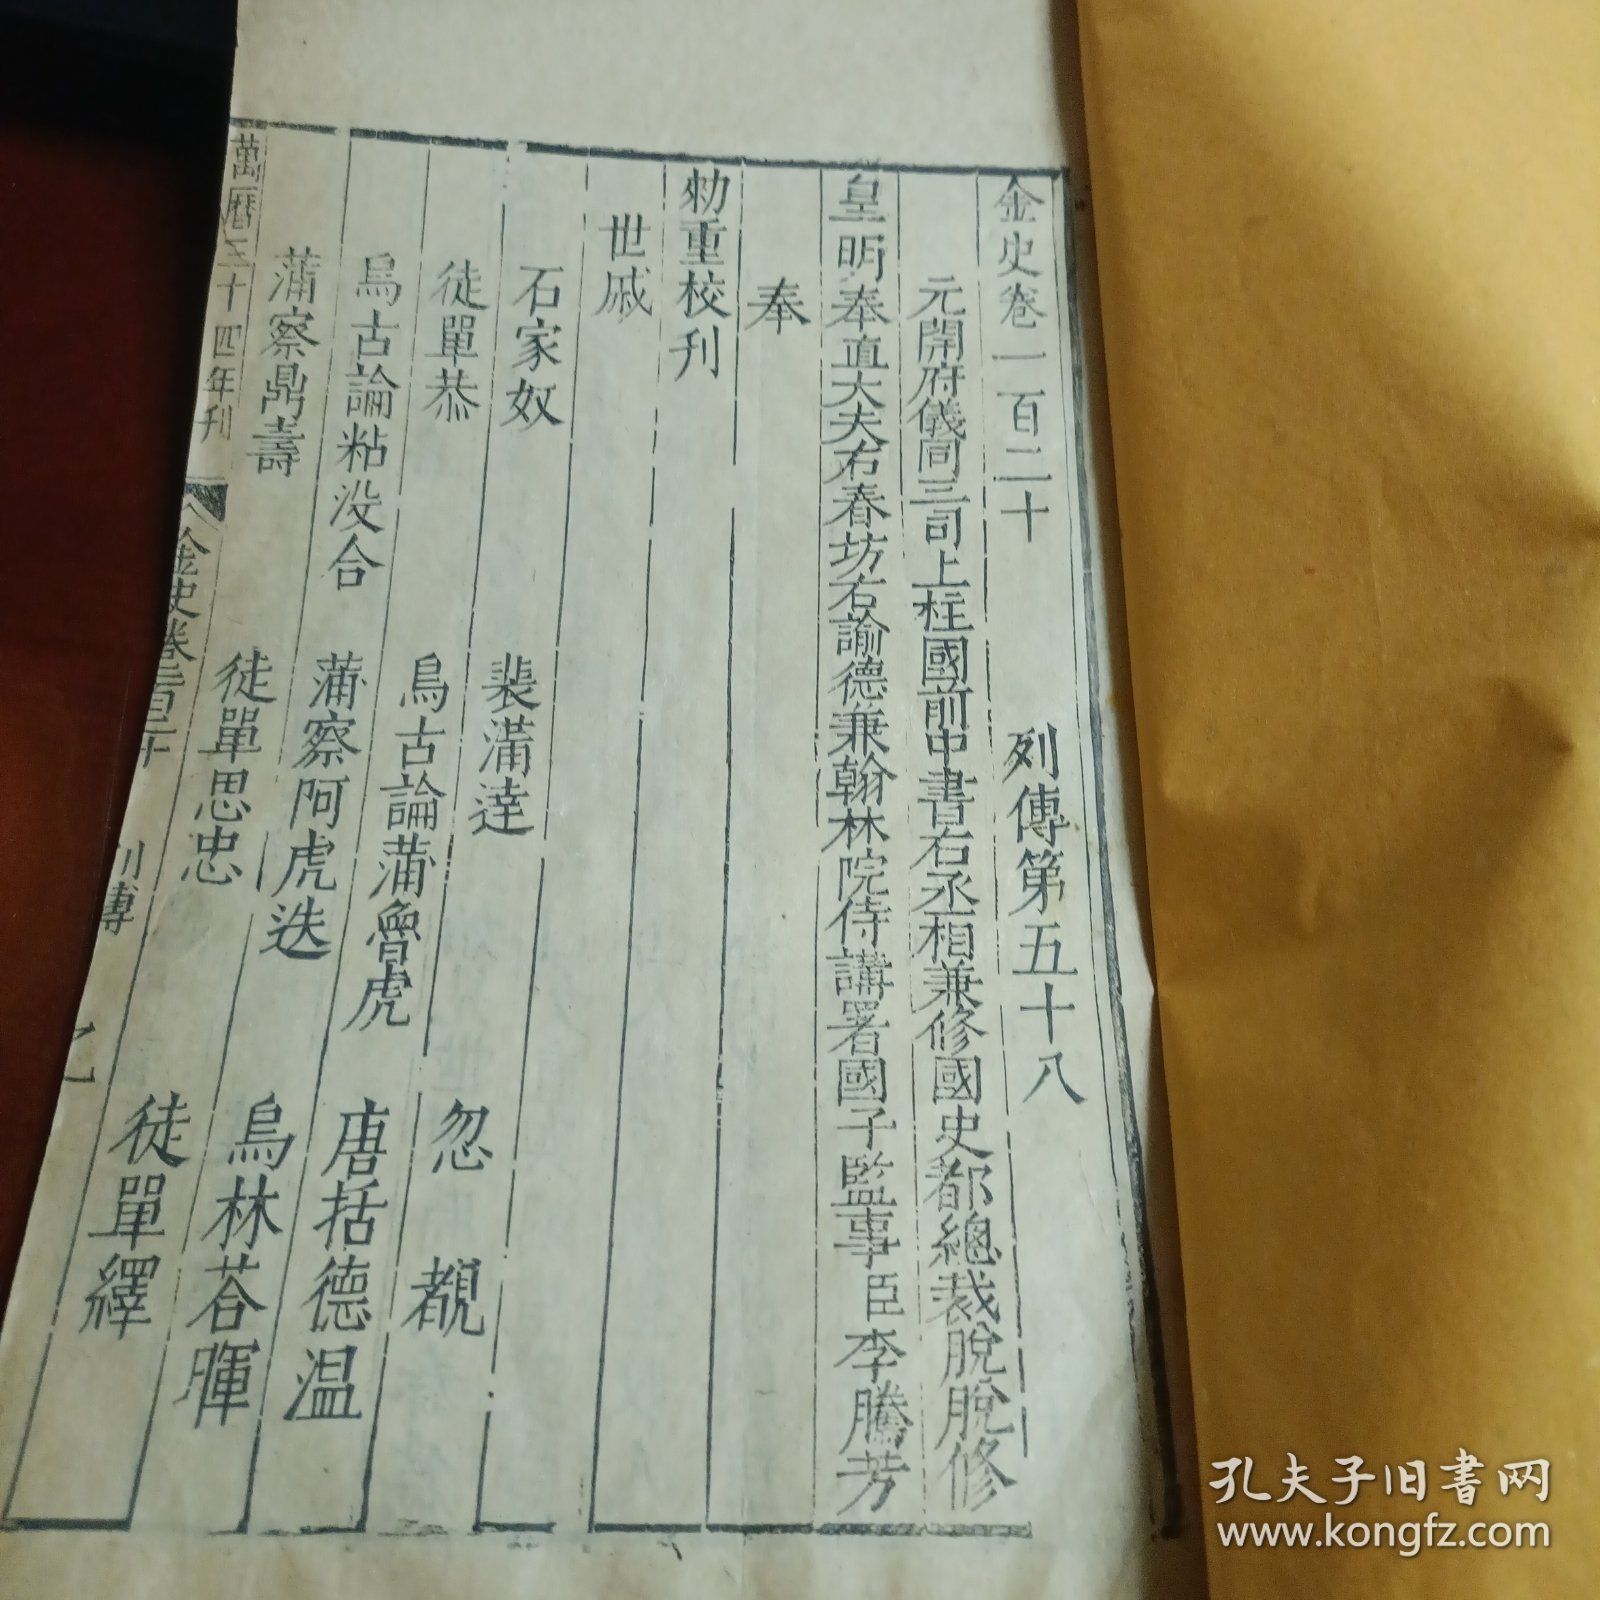 金史卷一百二十　列傳第五十八
元開府儀同三司上柱國前中書右丞相兼修國史都總裁脫脫修
皇明奉直大夫右春坊右諭德兼翰林院侍講署國子監事臣李騰芳
奉
勑重校刊
世戚
石家奴　裴滿達　忽覩
徒單恭　烏古論蒲魯虎　唐括德温
烏古論粘没合　蒲察阿虎迭　烏林荅暉
蒲察鼎壽　徒單思忠　徒單繹
萬曆三十四年刊　金史卷一百二十　列傳
孔夫子旧书网
www.kongfz.com